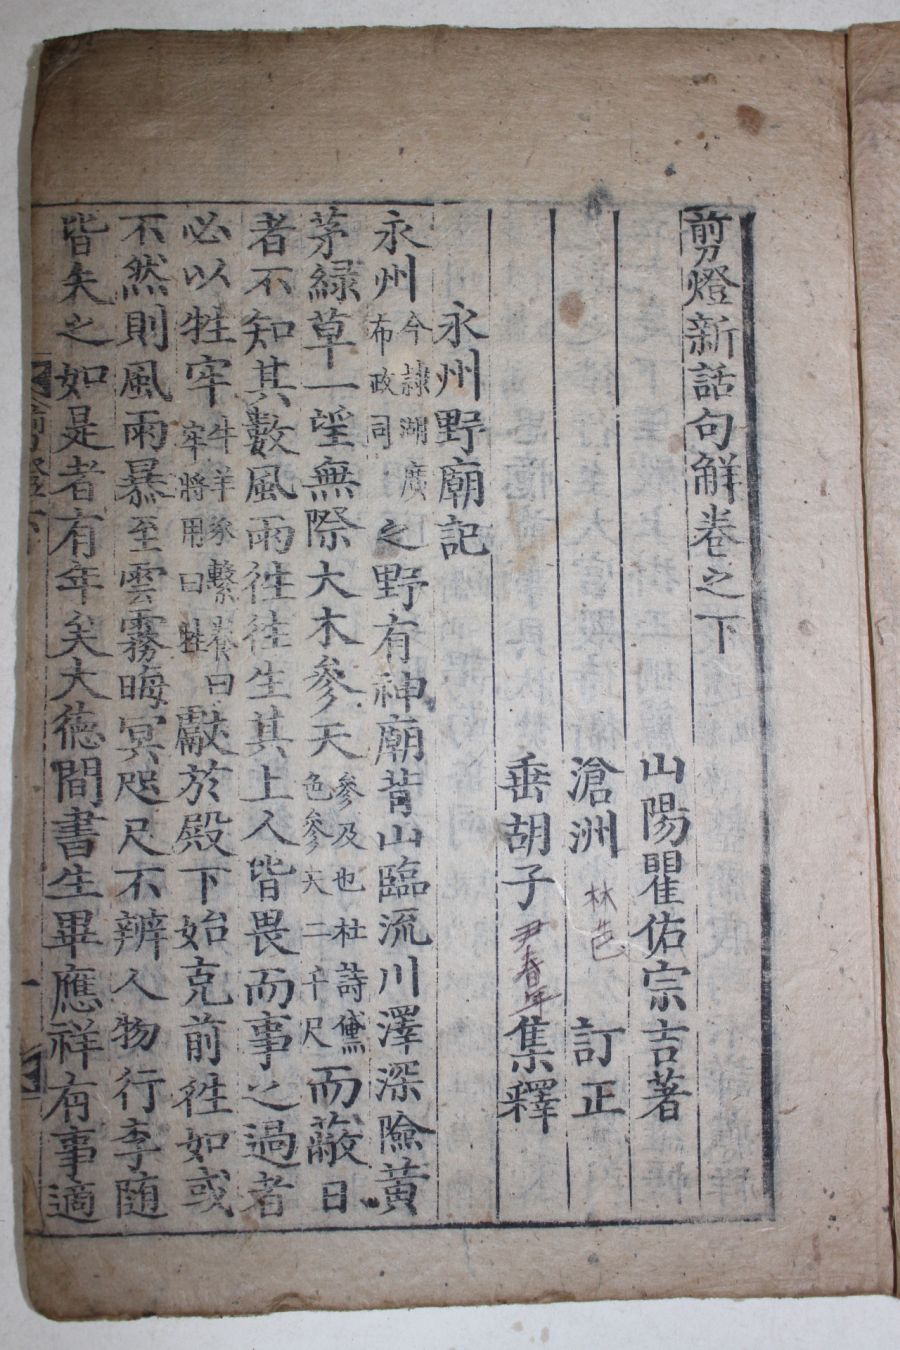 剪燈新話句解卷之下
山陽瞿佑宗吉著
滄洲 林芑 訂正
垂胡子 尹春年 集釋
永州野廟記
永州今隷湖廣布政司之野有神廟背山臨流川澤深險黃
茅綠草一望無際大木參天參及也杜詩黛色參天二千尺而蔽日
者不知其數風雨徃徃生其上人皆畏而事之過者
必以牲牢牛羊豕繫養曰牢將用曰牲獻於殿下始克前徃如或
不然則風雨暴至雲霧晦冥咫尺不辨人物行李隨
皆失之如是者有年矣大德間書生畢應祥有事適